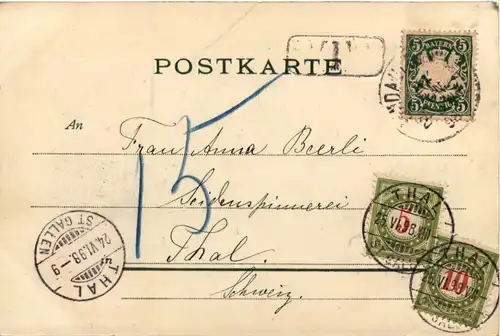 POSTKARTE
BAYERN
5 5
PFENNIG
An
15
Frau Anna Beerli
Seidenspinnerei
Thal.
Schweiz.
THAL
ST GALLEN
24.VI.98.–9
THAL
5
THAL
10